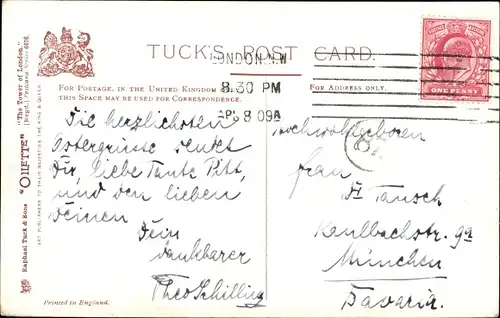 TUCK'S POST CARD.
LONDON.N.W
8.30 PM
AP 8 09
FOR POSTAGE, IN THE UNITED KINGDOM
THIS SPACE MAY BE USED FOR CORRESPONDENCE.
FOR ADDRESS ONLY.
ONE PENNY
Die herzlichsten
Ostergrüsse sendet
Dir, liebe Tante Pitt,
und den lieben
Deinen
Dein
dankbarer
Theo Schilling
Hochwohlgeboren
Frau
Dr Tausch
Kaulbachstr. 9a
München
Bavaria.
"The Tower of London."
(Regd.) Postcard Series 6676.
Raphael Tuck & Sons "OILETTE"
ART PUBLISHERS TO THEIR MAJESTIES THE KING & QUEEN.
Printed in England.